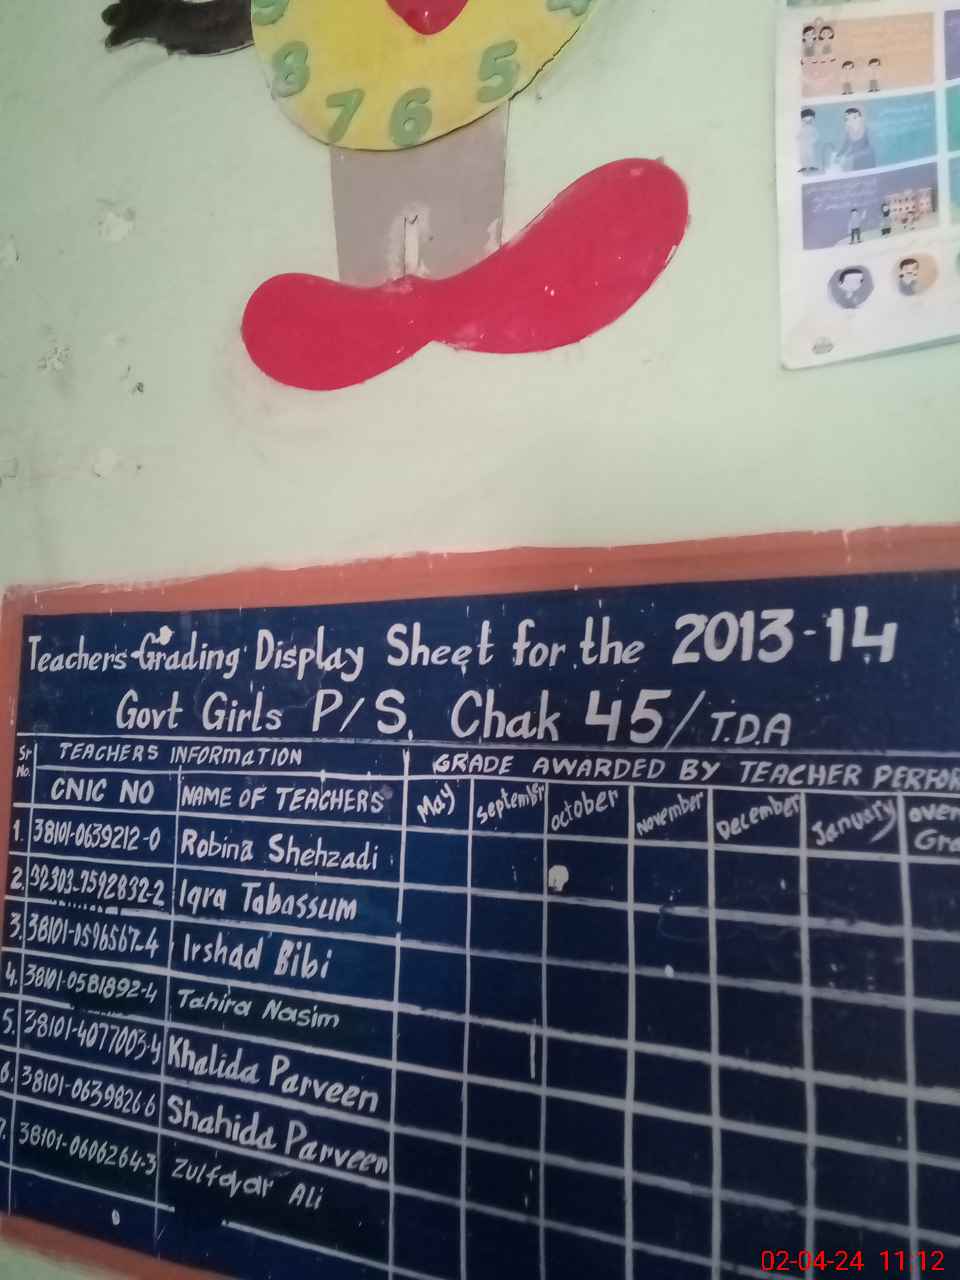 9 4
8 5
7 6
Teachers Grading Display Sheet for the 2013-14
Govt Girls P/S. Chak 45/T.D.A
Sr No. TEACHERS INFORMATION GRADE AWARDED BY TEACHER PERFOR
CNIC NO NAME OF TEACHERS May September October November December January over Gra
1. 38101-0639212-0 Robina Shehzadi
2. 32303-7592832-2 Iqra Tabassum
3. 38101-0596567-4 Irshad Bibi
4. 38101-0581892-4 Tahira Nasim
5. 38101-4077003-4 Khalida Parveen
6. 38101-0639826-6 Shahida Parveen
7. 38101-0606264-3 Zulfqar Ali
02-04-24 11:12